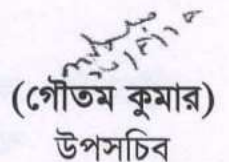 (গৌতম কুমার)
উপসচিব